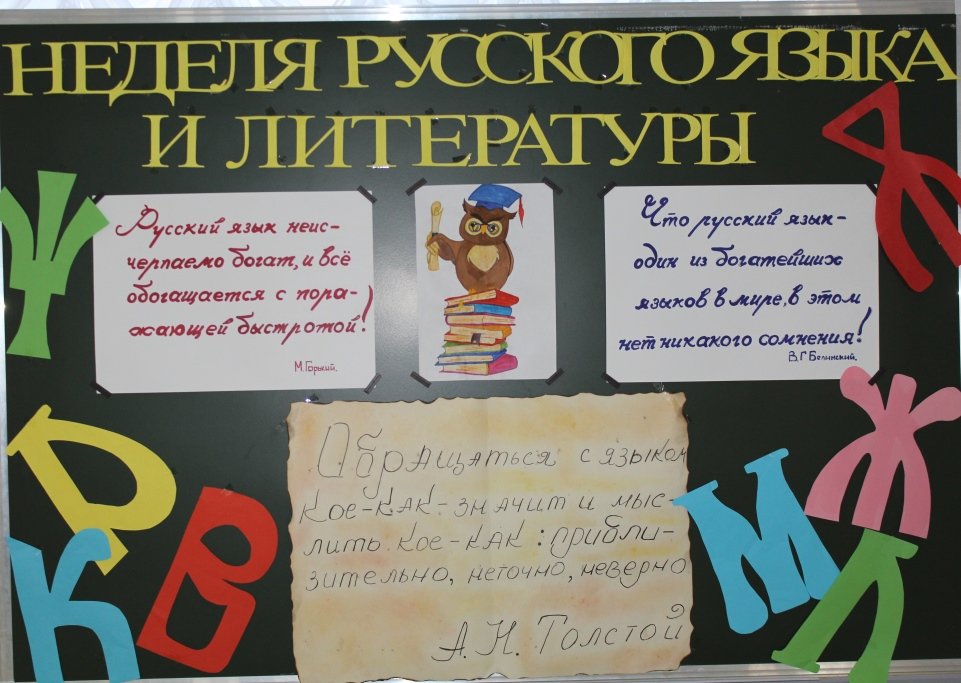 НЕДЕЛЯ РУССКОГО ЯЗЫКА
И ЛИТЕРАТУРЫ
Русский язык неис-
черпаемо богат, и всё
обогащается с пора-
жающей быстротой!
М. Горький.
Что русский язык-
один из богатейших
языков в мире, в этом
нет никакого сомнения!
В.Г Белинский.
Обращаться с языком
кое-как - значит и мыс-
лить кое-как: прибли-
зительно, неточно, неверно
А. Н. Толстой
Ψ
Я
Р
К
В
М
Ж
Л